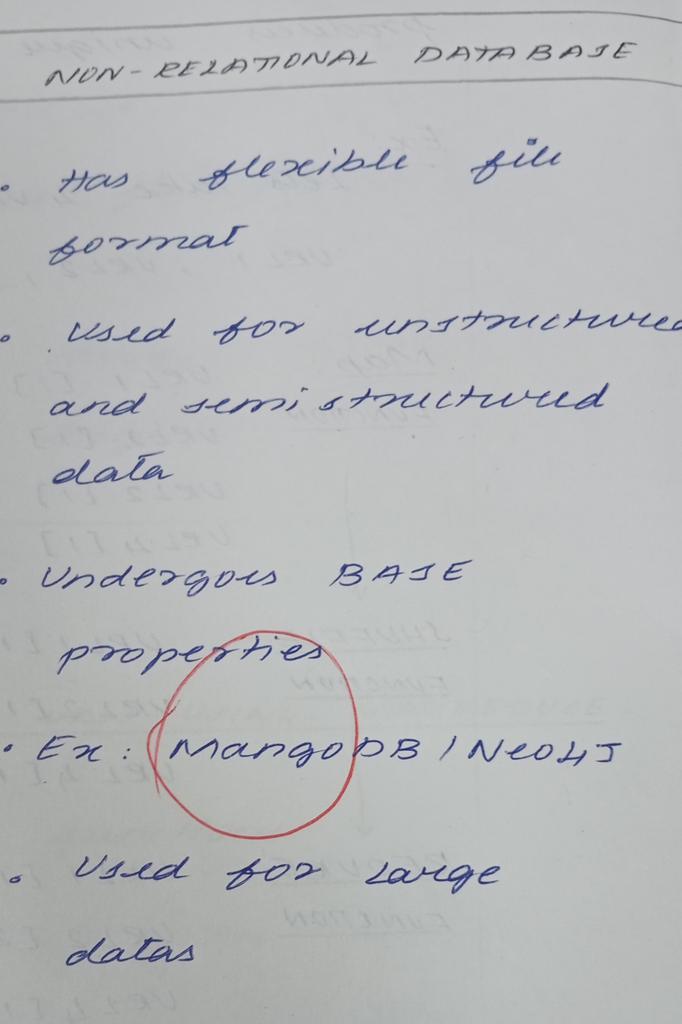 NON-RELATIONAL DATABASE
• Has flexible file
format
• Used for unstructured
and semi structured
data
• Undergoes BASE
properties
• Ex: MangoDB / Neo4J
• Used for Large
datas